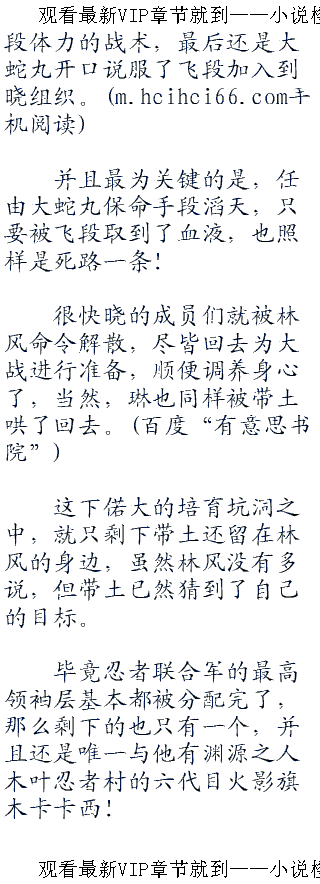 观看最新VIP章节就到——小说
段体力的战术，最后还是大
蛇丸开口说服了飞段加入到
晓组织。(m.hcihci66.com手
机阅读)
并且最为关键的是，任
由大蛇丸保命手段滔天，只
要被飞段取到了血液，也照
样是死路一条！
很快晓的成员们就被林
风命令解散，尽皆回去为大
战进行准备，顺便调养身心
了，当然，琳也同样被带土
哄了回去。(百度“有意思书
院”)
这下偌大的培育坑洞之
中，就只剩下带土还留在林
风的身边，虽然林风没有多
说，但带土已然猜到了自己
的目标。
毕竟忍者联合军的最高
领袖层基本都被分配完了，
那么剩下的也只有一个，并
且还是唯一与他有渊源之人
木叶忍者村的六代目火影旗
木卡卡西！
观看最新VIP章节就到——小说